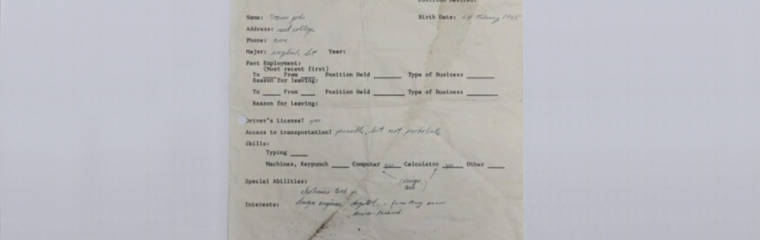 Position Desired:
Name: Steven jobs Birth Date: 24 February 1955
Address: reed college
Phone: none
Major: english, lit Year:
Past Employment:
(Most recent first)
To From Position Held Type of Business
Reason for leaving:
To From Position Held Type of Business
Reason for leaving:
Driver's License? yes
Access to transportation? possible, but not probable
Skills:
Typing
Machines, Keypunch Computer yes Calculator yes Other
(design, tech)
Special Abilities: electronics tech or
Interests: design engineer. digital. - from Bay near